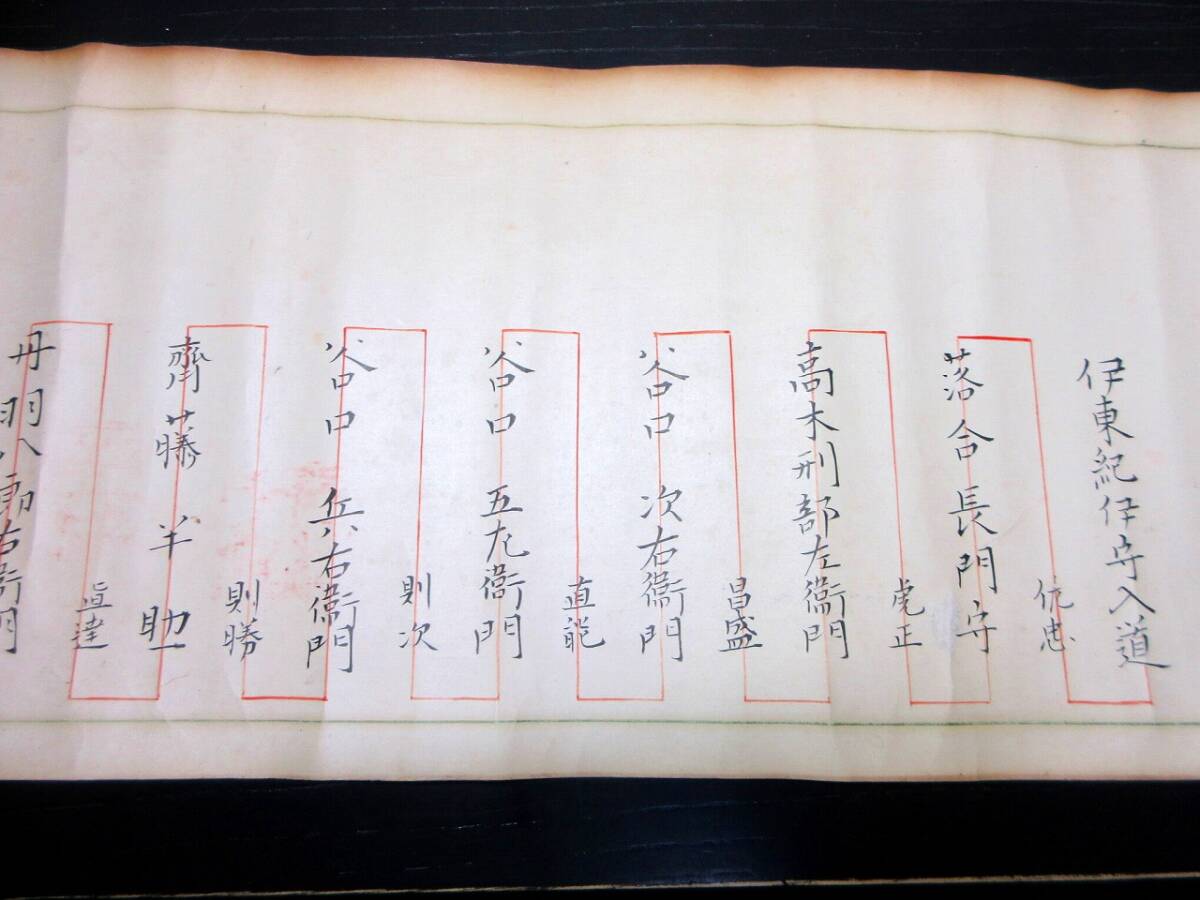 伊東紀伊守入道
伉忠
落合長門守
虎正
高木刑部左衛門
昌盛
谷口 次右衛門
直能
谷口 五左衛門
則次
谷口 兵右衛門
則勝
齊藤 半助
直達
丹羽八郎右衛門